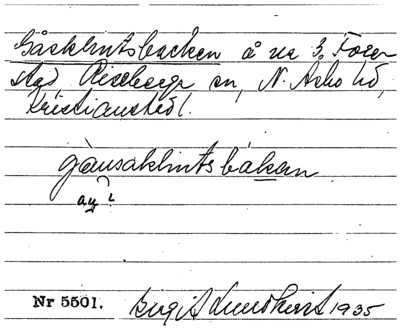 Gåsklintsbacken å nr 3, Forestad
Riseberga sn, N. Åsbo hd,
Kristianstad l.
gånsaklintsbakan
Nr 5501. Birgit Lundkvist 1935